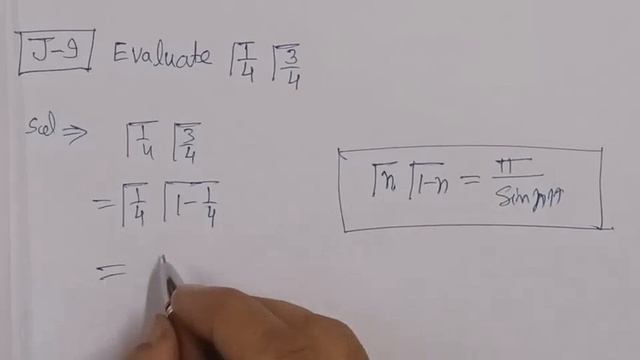 J-9 Evaluate Γ1/4 Γ3/4
Sol ⇒ Γ1/4 Γ3/4
= Γ1/4 Γ1-1/4
Γn Γ1-n = π/Sin nπ
=